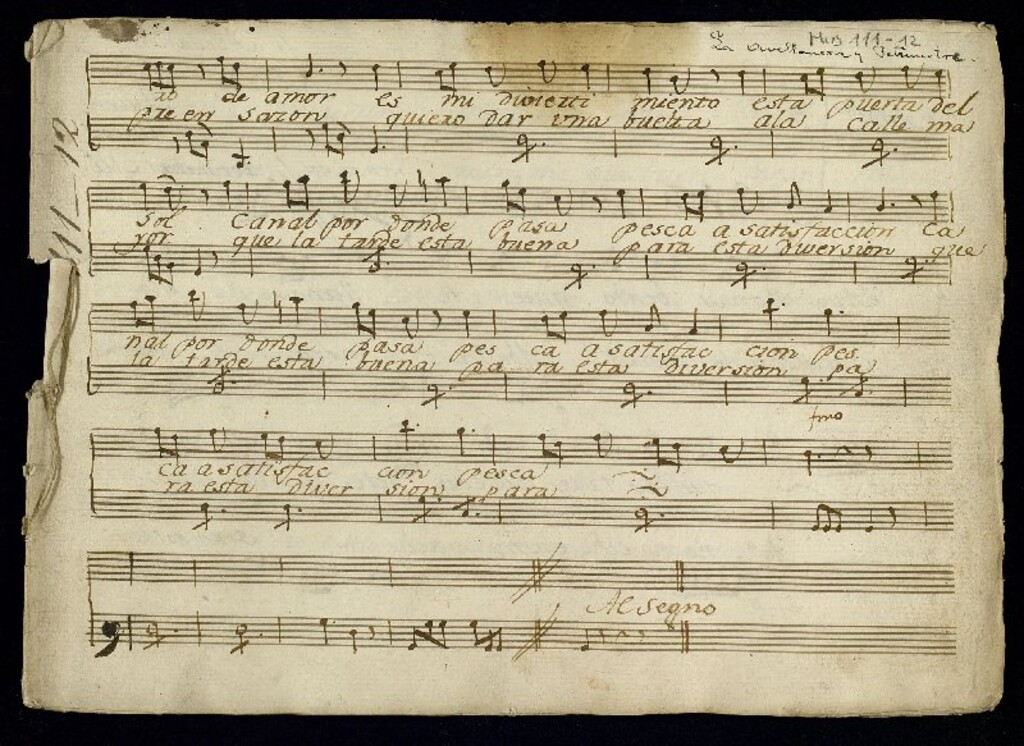 Mus 111-12
La Avellanera y Petimetre.
111-12
io de amor es mi diverti miento esta puerta del
pie en sazon quiero dar vna buelta ala calle ma
Sol Canal por donde pasa pesca a satisfaccion Ca
yor que la tarde esta buena para esta diversion que
nal por donde pasa pes ca a satisfac cion pes
la tarde esta buena pa ra esta diversion pa
fmo
ca a satisfac cion pesca
ra esta diver sion para
Al Segno